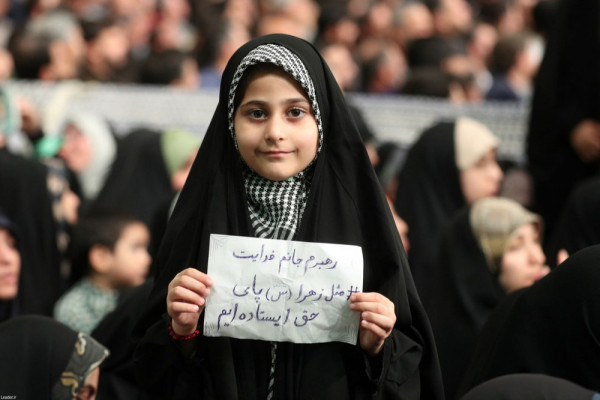 رهبرم جانم فدایت
#مثل زهرا (س) پای
حق ایستاده‌ایم
Leader.ir